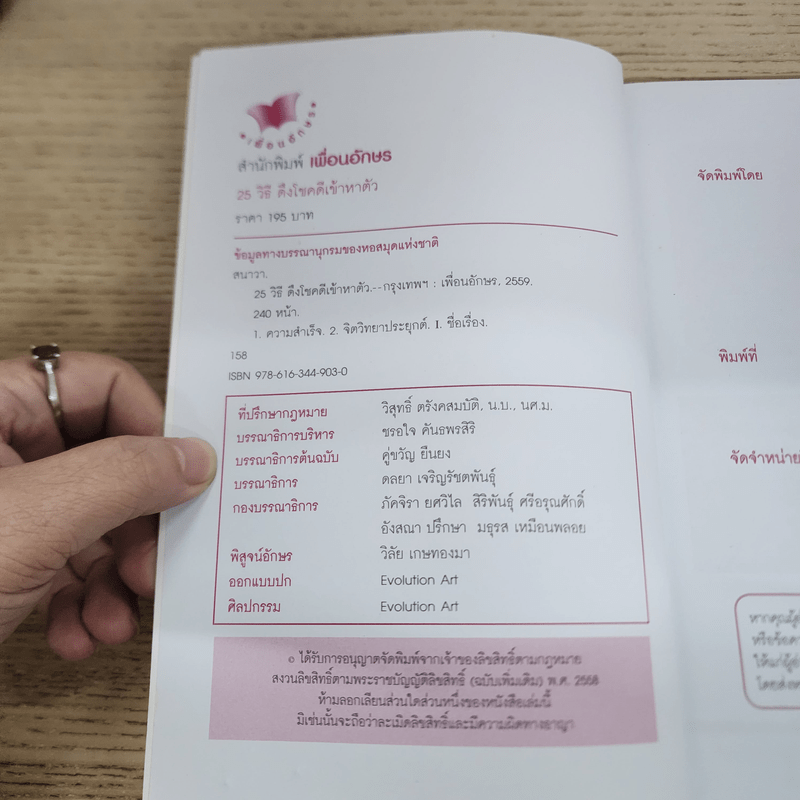 เพื่อนอักษร
สำนักพิมพ์ เพื่อนอักษร
25 วิธี ดึงโชคดีเข้าหาตัว
ราคา 195 บาท
ข้อมูลทางบรรณานุกรมของหอสมุดแห่งชาติ
สนาวา.
25 วิธี ดึงโชคดีเข้าหาตัว.--กรุงเทพฯ : เพื่อนอักษร, 2559.
240 หน้า.
1. ความสำเร็จ. 2. จิตวิทยาประยุกต์. I. ชื่อเรื่อง.
158
ISBN 978-616-344-903-0
ที่ปรึกษากฎหมาย วิสุทธิ์ ตรังคสมบัติ, น.บ., นศ.ม.
บรรณาธิการบริหาร ชรอใจ คันธพรสิริ
บรรณาธิการต้นฉบับ คู่ขวัญ ยืนยง
บรรณาธิการ ดลยา เจริญรัชตพันธุ์
กองบรรณาธิการ ภัคจิรา ยศวิไล สิริพันธุ์ ศรีอรุณศักดิ์
อังสณา ปรึกษา มธุรส เหมือนพลอย
พิสูจน์อักษร วิลัย เกษทองมา
ออกแบบปก Evolution Art
ศิลปกรรม Evolution Art
๐ ได้รับการอนุญาตจัดพิมพ์จากเจ้าของลิขสิทธิ์ตามกฎหมาย
สงวนลิขสิทธิ์ตามพระราชบัญญัติลิขสิทธิ์ (ฉบับเพิ่มเติม) พ.ศ. 2558
ห้ามลอกเลียนส่วนใดส่วนหนึ่งของหนังสือเล่มนี้
มิเช่นนั้นจะถือว่าละเมิดลิขสิทธิ์และมีความผิดทางอาญา
จัดพิมพ์โดย
พิมพ์ที่
จัดจำหน่าย
หากคุณผู้
หรือข้อค
ให้แก่ผู้
โดยส่ง